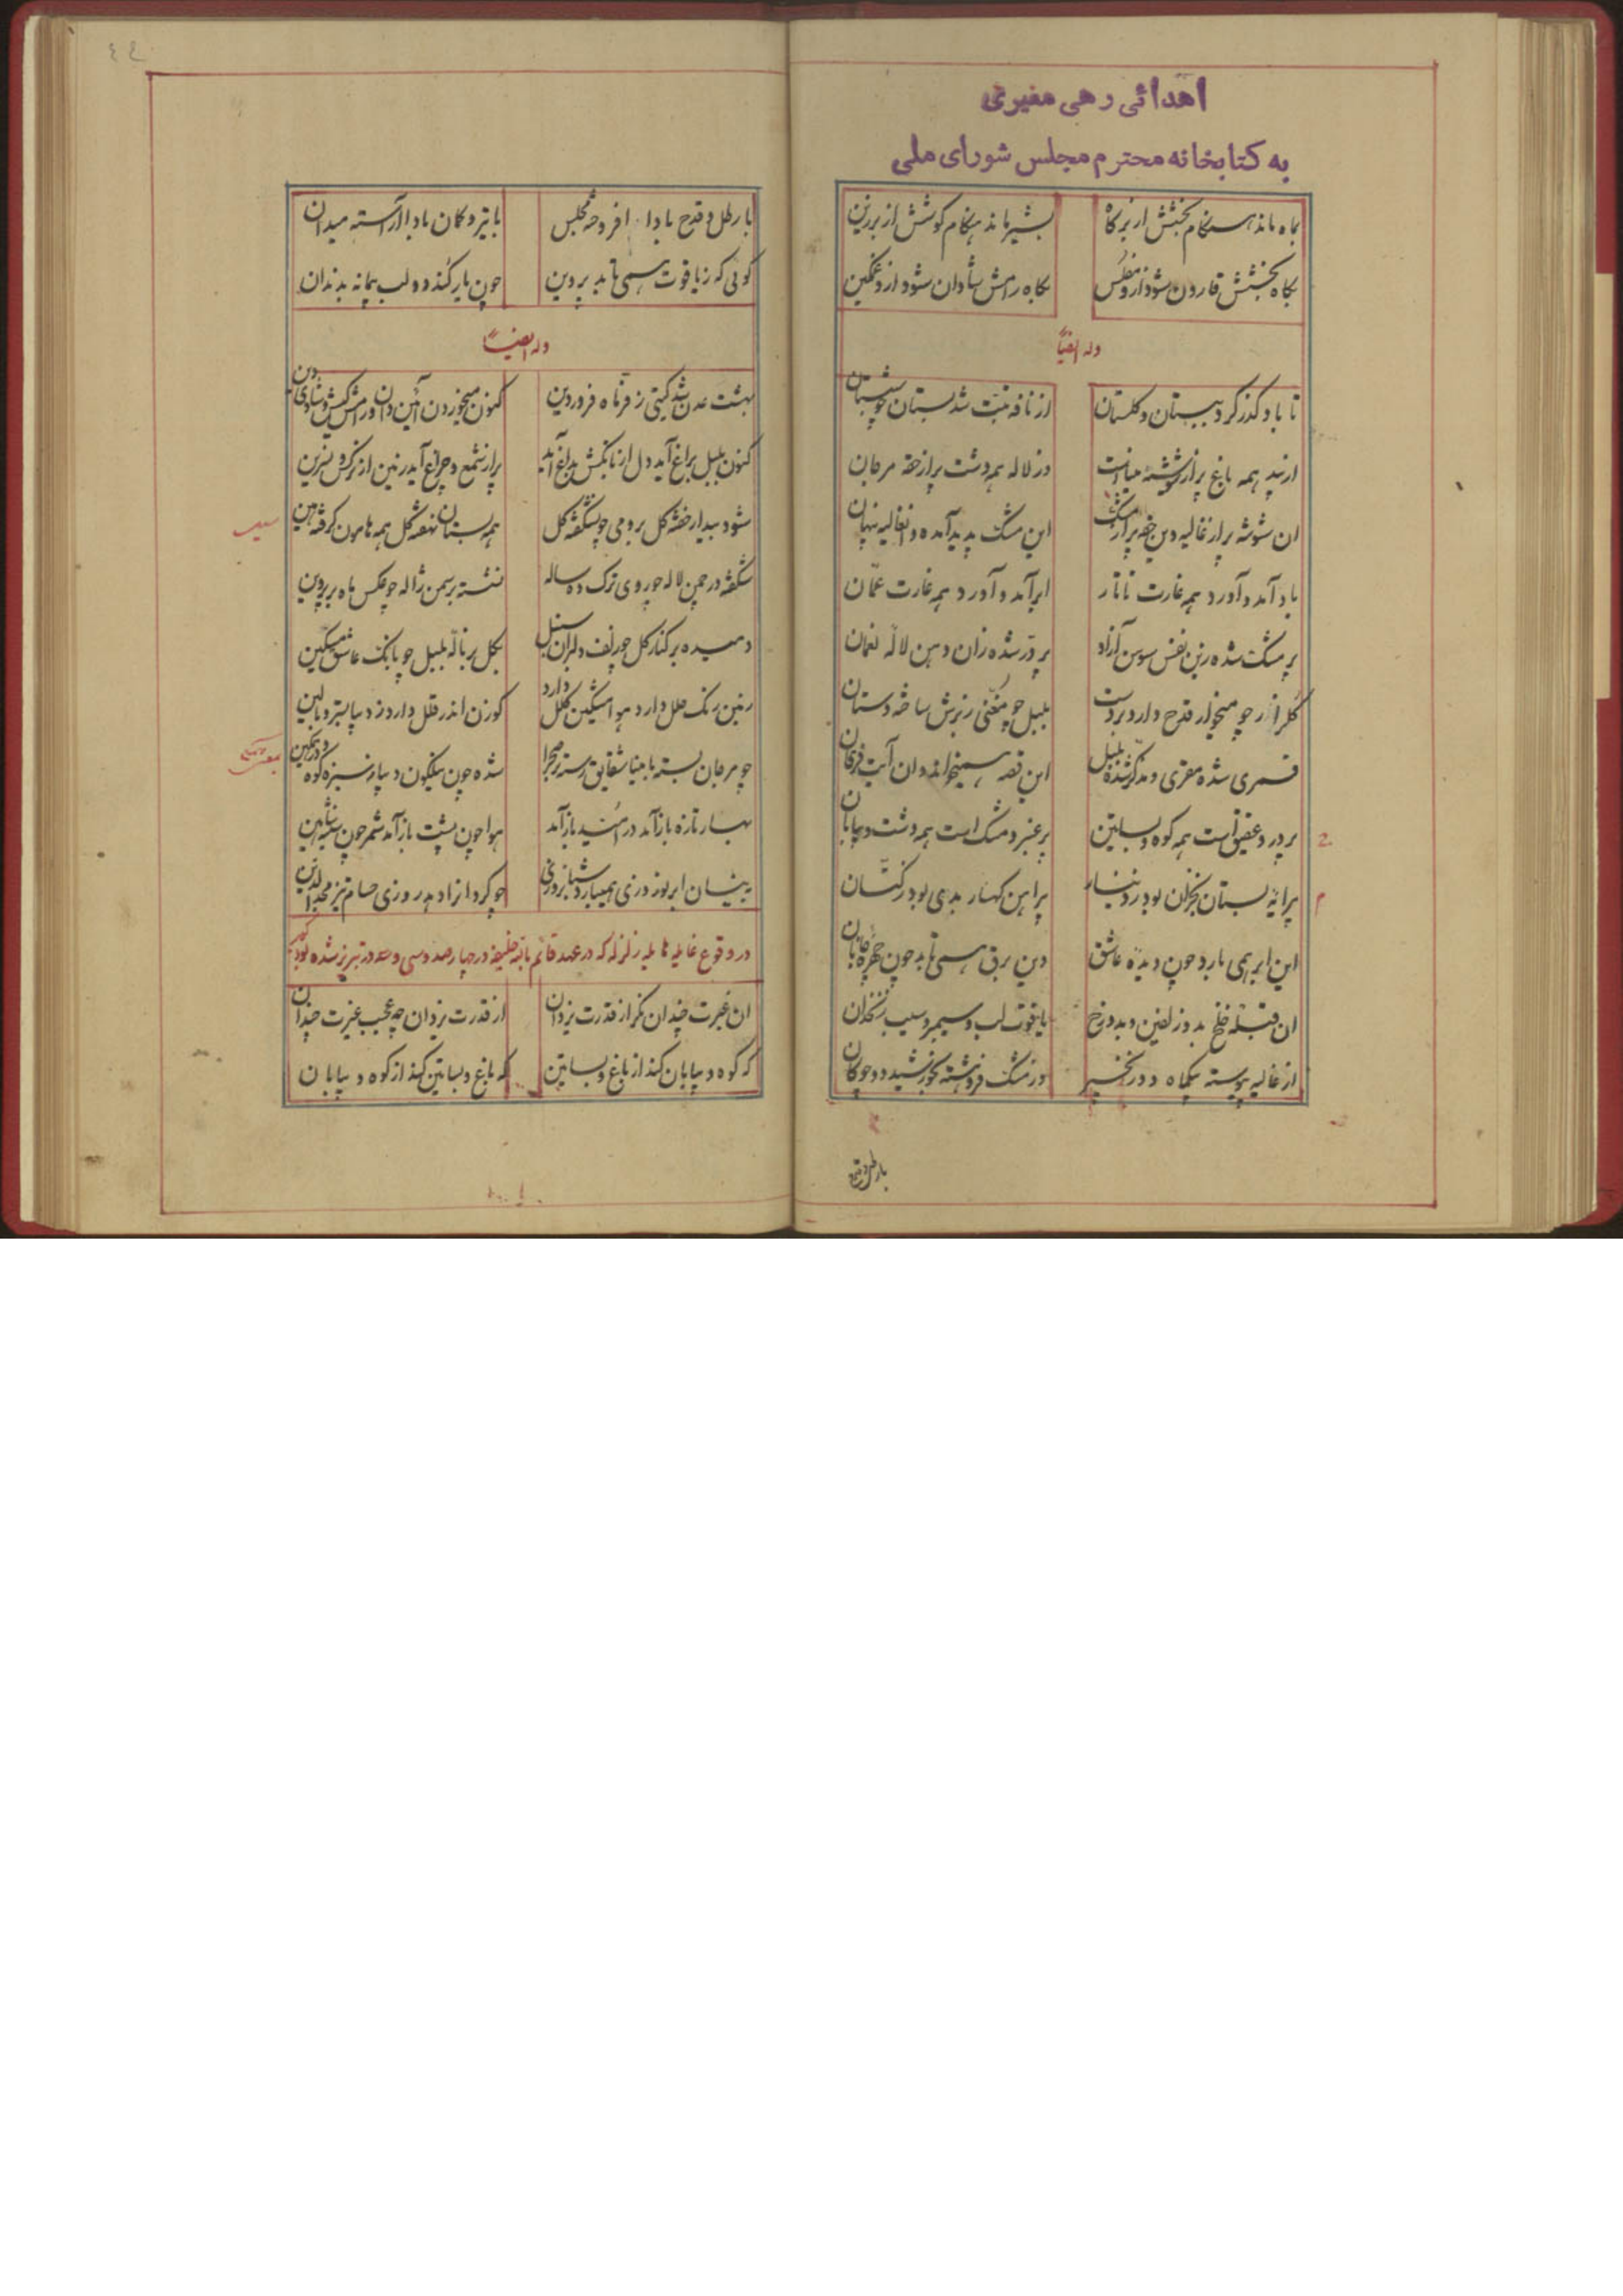 اهدائی رهی معیری
به کتابخانه محترم مجلس شورای ملی
بماه ماند هنگام بخشش از برگاه بشیر ماند هنگام کوشش از برزین
بگاه بخشش قارون شود ازو مفلس بگاه رامش شادان شود ازو غمگین
وله ایضاً
تا باد گذر کرد ببستان و گلستان از نافه تبت شد بستان چو شبستان
از بید همه باغ پر از شوشه میناست وز لاله همه دشت پر از حقه مرجان
ان شوشه پر از غالیه وین حقه پر از مشک این مشک پدید آمده و ان غالیه پنهان
باد آمد و آورد همه غارت تاتار ابر آمد و آورد همه غارت عمّان
پر مشک شده زین نفس سوسن آزاد پر درّ شده زان دهن لاله نعمان
گلزار چو میخوار قدح دارد بر دست بلبل چو مغنی زبرش ساخته دستان
قمری شده مقری و مذکر شده بلبل این قصه همیخواند و ان آیت فرقان
پر در و عقیق است همه کوه و بساتین پر عنبر و مشک است همه دشت و بیابان
پیرایه بستان بخزان بود ز دینار پیراهن کهسار بدی بود ز کتّان
این ابر همی بارد چون دیده عاشق وین برق همی تابد چون چهره جانان
ان قبله خلخ بدو زلفین و بدو رخ یاقوت لب و سیمبر و سیب زنخدان
از غالیه پیوسته بیکماه دو زنجیر وز مشک فروهشته بخورشید دو چوگان
با رطل و قدح
با رطل و قدح بادا افروخته مجلس با تیر و کمان بادا آراسته میدان
گوئی که ز یاقوت همی تابد پروین چون یار کند دو لب بیمانه بدندان
وله ایضاً
بهشت عدن شد گیتی ز فرّ ماه فروردین کنون میخوردن آئین دان و رامش کیش و شادی دین
کنون بلبل بباغ آید دل از بانگش بداغ آید پر از شمع و چراغ آید زمین از نرگس و نسرین
شود بیدار خفته گل برومی چو شکفته گل همه بستان نهفته گل همه هامون گرفته هین
شکفته در چمن لاله چو روی ترک ده ساله نشسته بر سمن ژاله چو عکس ماه بر پروین
دمیده بر کنار گل چو زلف دلبران سنبل بگل بر ناله بلبل چو بانگ عاشق مسکین
زمین رنگ حلل دارد هوا مشکین کلل دارد گوزن اندر قلل دارد ز دیبا بستر و بالین
چو مرجان بسته با مینا شقایق رسته در صحرا شده چون نیلگون دیبا ز سبزه کوه
بهار تازه باز آمد درامید باز آمد هوا چون پشت باز آمد شمر چون سینه شاهین
نیسان ابر نوروزی همیبارد شبانروزی چو کرد انزاد به روزی حسام تیز مجدالدین
در وقوع غایله هایله زلزله که در عهد قائم بالله خلیفه در چهارصد و سی و سه در تبریز شده گوید
ان غیرت چندان نگر از قدرت یزدان از قدرت یزدان چه عجب غیرت چندان
که کوه و بیابان کند از باغ و بساتین که باغ و بساتین کند از کوه و بیابان